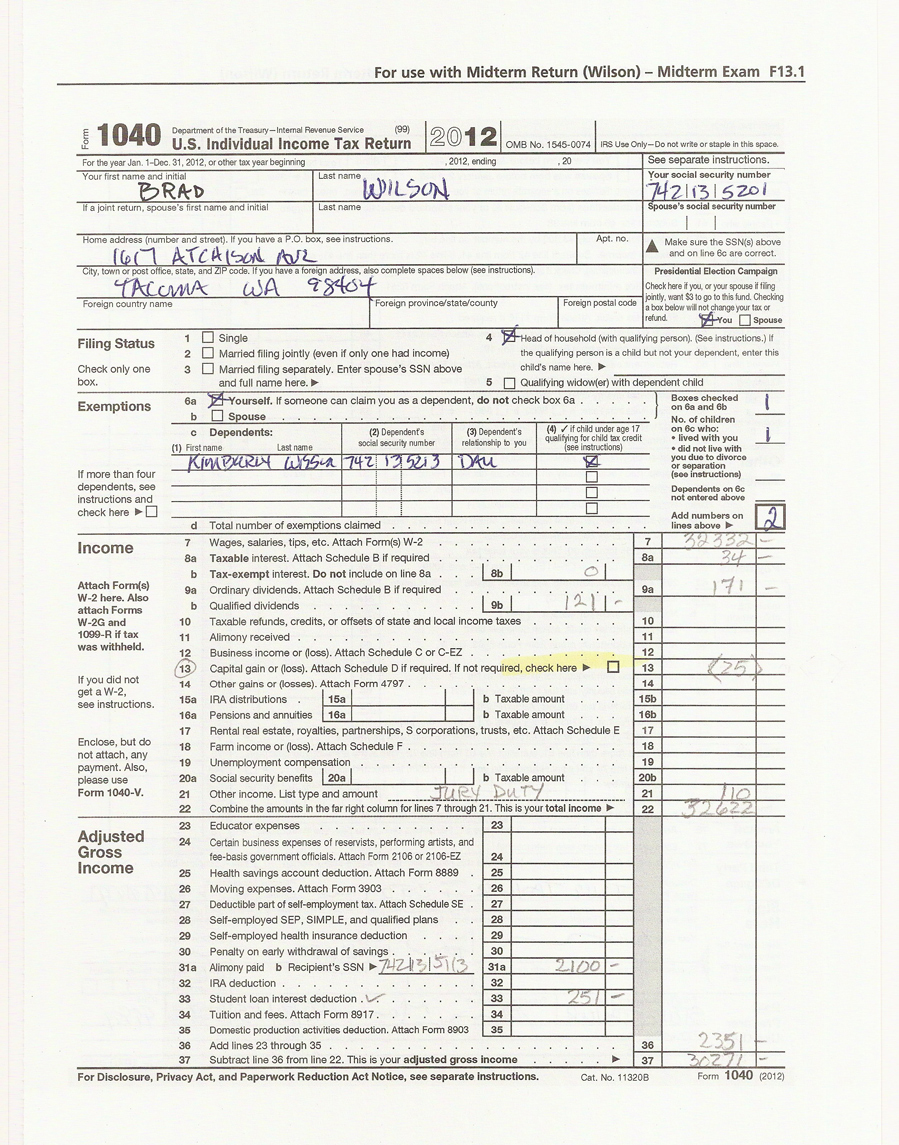 For use with Midterm Return (Wilson) – Midterm Exam F13.1
Form 1040 Department of the Treasury—Internal Revenue Service (99) U.S. Individual Income Tax Return 2012 OMB No. 1545-0074 IRS Use Only—Do not write or staple in this space.
For the year Jan. 1–Dec. 31, 2012, or other tax year beginning , 2012, ending , 20 See separate instructions.
Your first name and initial Last name Your social security number
BRAD WILSON 742 13 5201
If a joint return, spouse's first name and initial Last name Spouse's social security number
Home address (number and street). If you have a P.O. box, see instructions. Apt. no.
1617 ATCHISON AVE
▲ Make sure the SSN(s) above and on line 6c are correct.
City, town or post office, state, and ZIP code. If you have a foreign address, also complete spaces below (see instructions).
TACOMA WA 98404
Foreign country name Foreign province/state/county Foreign postal code
Presidential Election Campaign
Check here if you, or your spouse if filing
jointly, want $3 to go to this fund. Checking
a box below will not change your tax or
refund. You Spouse
Filing Status
Check only one
box.
1 Single
2 Married filing jointly (even if only one had income)
3 Married filing separately. Enter spouse's SSN above
and full name here. ▶
4 Head of household (with qualifying person). (See instructions.) If
the qualifying person is a child but not your dependent, enter this
child's name here. ▶
5 Qualifying widow(er) with dependent child
Exemptions
6a Yourself. If someone can claim you as a dependent, do not check box 6a
b Spouse
c Dependents: (2) Dependent's social security number (3) Dependent's relationship to you (4) ✓ if child under age 17 qualifying for child tax credit (see instructions)
(1) First name Last name
742 13 5213 DAU
If more than four
dependents, see
instructions and
check here ▶
d Total number of exemptions claimed
Boxes checked
on 6a and 6b 1
No. of children
on 6c who:
• lived with you 1
• did not live with
you due to divorce
or separation
(see instructions)
Dependents on 6c
not entered above
Add numbers on
lines above ▶ 2
Income
7 Wages, salaries, tips, etc. Attach Form(s) W-2 7 32332 –
8a Taxable interest. Attach Schedule B if required 8a 34 –
b Tax-exempt interest. Do not include on line 8a 8b 0
9a Ordinary dividends. Attach Schedule B if required 9a 171 –
b Qualified dividends 9b 121 –
10 Taxable refunds, credits, or offsets of state and local income taxes 10
11 Alimony received 11
12 Business income or (loss). Attach Schedule C or C-EZ 12
13 Capital gain or (loss). Attach Schedule D if required. If not required, check here ▶ 13 (25)
14 Other gains or (losses). Attach Form 4797 14
15a IRA distributions 15a b Taxable amount 15b
16a Pensions and annuities 16a b Taxable amount 16b
17 Rental real estate, royalties, partnerships, S corporations, trusts, etc. Attach Schedule E 17
18 Farm income or (loss). Attach Schedule F 18
19 Unemployment compensation 19
20a Social security benefits 20a b Taxable amount 20b
21 Other income. List type and amount JURY DUTY 21 110
22 Combine the amounts in the far right column for lines 7 through 21. This is your total income ▶ 22 32622
Attach Form(s)
W-2 here. Also
attach Forms
W-2G and
1099-R if tax
was withheld.
If you did not
get a W-2,
see instructions.
Enclose, but do
not attach, any
payment. Also,
please use
Form 1040-V.
Adjusted
Gross
Income
23 Educator expenses 23
24 Certain business expenses of reservists, performing artists, and
fee-basis government officials. Attach Form 2106 or 2106-EZ 24
25 Health savings account deduction. Attach Form 8889 25
26 Moving expenses. Attach Form 3903 26
27 Deductible part of self-employment tax. Attach Schedule SE 27
28 Self-employed SEP, SIMPLE, and qualified plans 28
29 Self-employed health insurance deduction 29
30 Penalty on early withdrawal of savings 30
31a Alimony paid b Recipient's SSN ▶ 31a 2100 –
32 IRA deduction 32
33 Student loan interest deduction 33 251 –
34 Tuition and fees. Attach Form 8917 34
35 Domestic production activities deduction. Attach Form 8903 35
36 Add lines 23 through 35 36 2351 –
37 Subtract line 36 from line 22. This is your adjusted gross income ▶ 37 30271 –
For Disclosure, Privacy Act, and Paperwork Reduction Act Notice, see separate instructions. Cat. No. 11320B Form 1040 (2012)